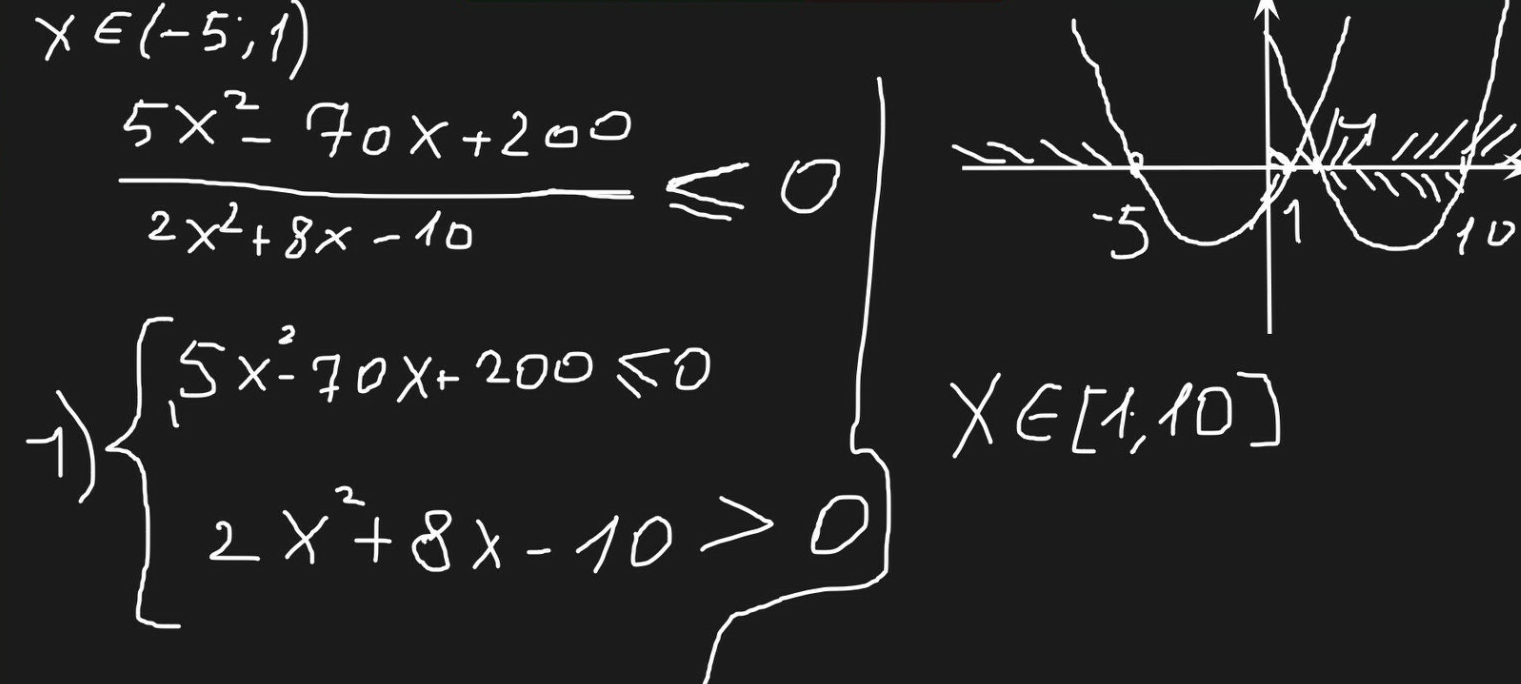 x ∈ (-5; 1)
5x² - 70x + 200
2x² + 8x - 10
≤ 0
1) { 5x² - 70x + 200 ≤ 0
2x² + 8x - 10 > 0
4
-5 1 10
x ∈ [1, 10]